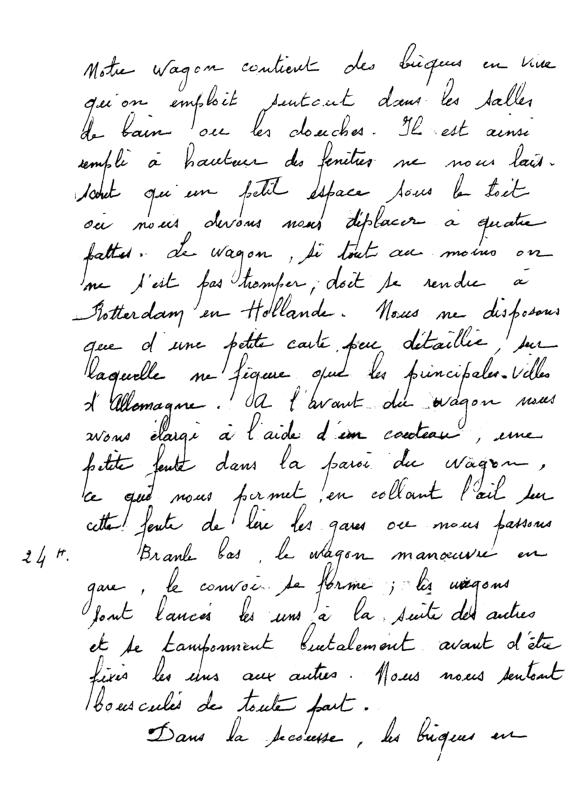 Notre wagon contient des briques en vrue
qu'on emploit surtout dans les salles
de bain ou les douches. Il est ainsi
rempli à hauteur des fenêtres ne nous lais-
sant qu'un petit espace sous le toit
où nous devons nous déplacer à quatre
pattes. Le wagon, si tout au moins on
ne s'est pas tromper, doit se rendre à
Rotterdam en Hollande. Nous ne disposons
que d'une petite carte peu détaillée, sur
laquelle ne figure que les principales villes
d'Allemagne. A l'avant du wagon nous
avons élargi à l'aide d'un couteau, une
petite fente dans la paroi du wagon,
ce qui nous permet, en collant l'œil sur
cette fente de lire les gares ou nous passons
24 H. Branle bas, le wagon manœuvre en
gare, le convoi se forme; les wagons
sont lancés les uns à la suite des autres
et se tamponnent brutalement avant d'être
fixés les uns aux autres. Nous nous sentons
bousculés de toute part.
Dans la secousse, les briques en